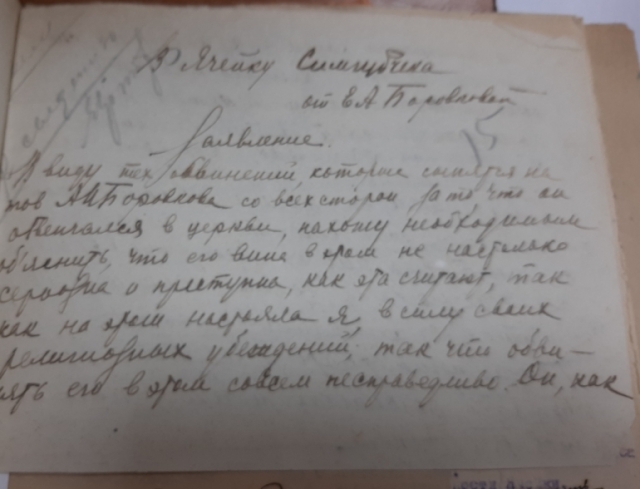 В Ячейку Симгубчека
от Е А Боровковой
Заявление.
В виду тех обвинений которые сыпятся на
тов А И Боровкова со всех сторон за то что он
обвенчался в церкви, нахожу необходимым
объяснить, что его вина в этом не настолько
серьозна и преступна, как это считают, так
как на этом настояла я, в силу своих
религиозных убеждений, так что обви–
нять его в этом совсем несправедливо. Он, как